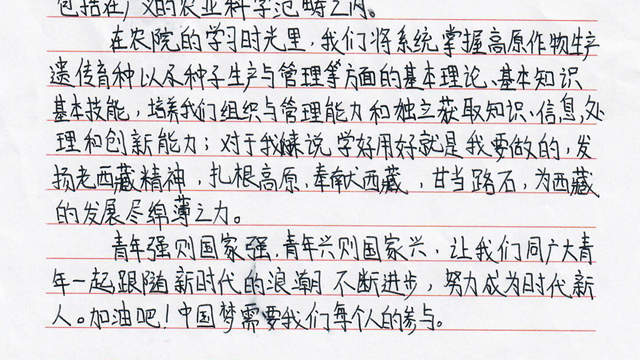 包括在广义的农业科学范畴之内。
在农院的学习时光里，我们将系统掌握高原作物生产
遗传育种以及种子生产与管理等方面的基本理论、基本知识
基本技能，培养我们组织与管理能力和独立获取知识、信息、处
理和创新能力；对于我来说学好用好就是我要做的，发
扬老西藏精神，扎根高原，奉献西藏，甘当路石，为西藏
的发展尽绵薄之力。
青年强则国家强，青年兴则国家兴，让我们同广大青
年一起，跟随新时代的浪潮不断进步，努力成为时代新
人。加油吧！中国梦需要我们每个人的参与。